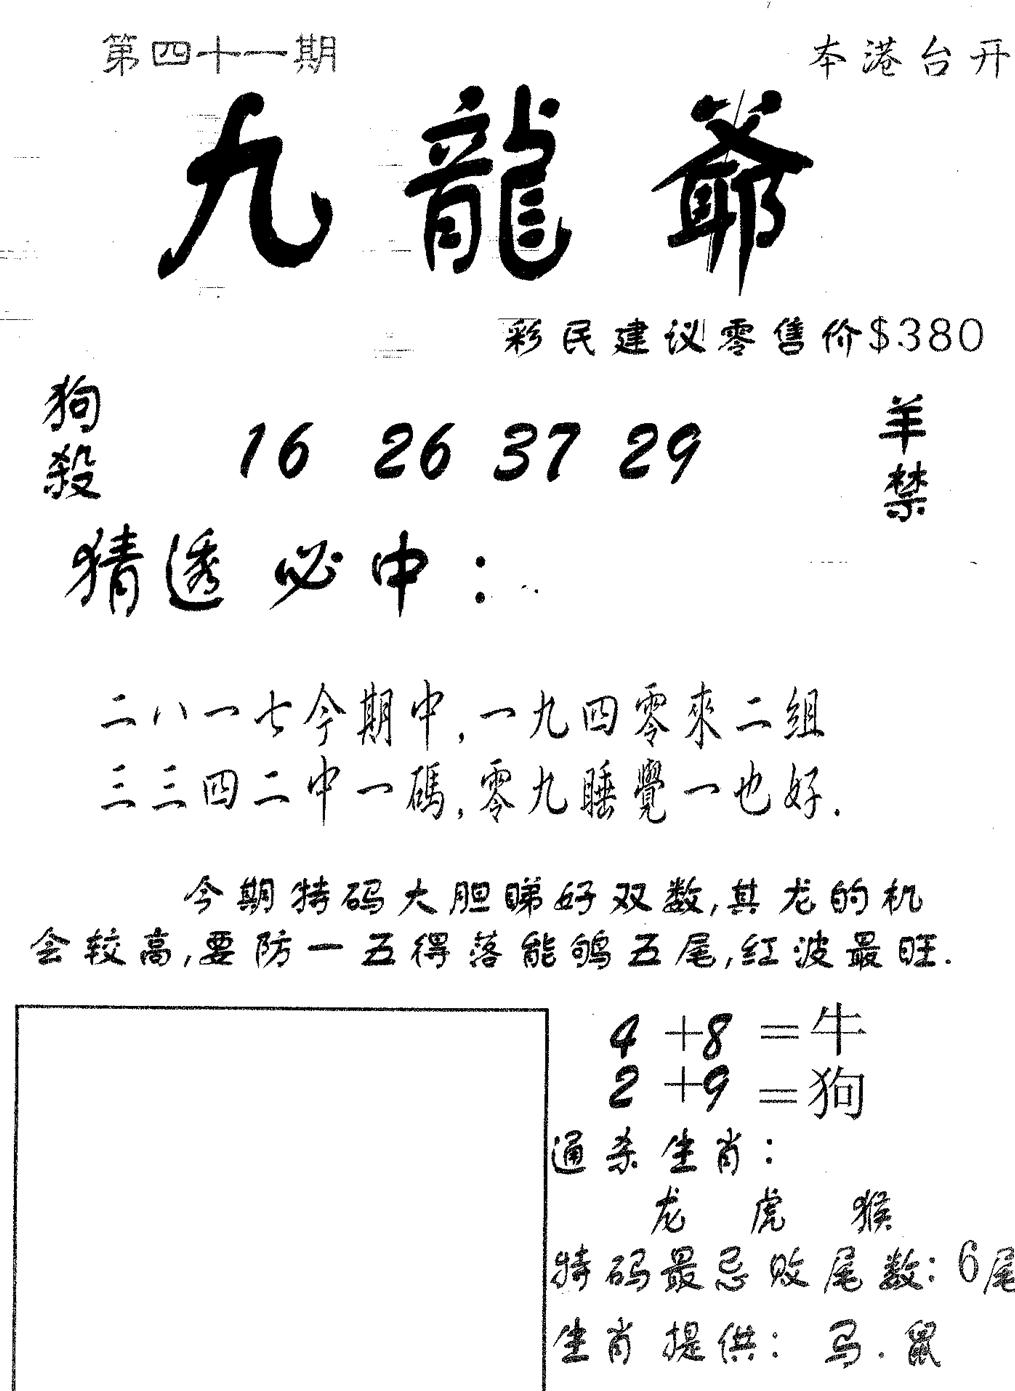 第四十一期 本港台开
九龍爺
彩民建议零售价$380
狗殺 16 26 37 29 羊禁
猜透必中：
二八一七今期中,一九四零來二組
三三四二中一碼,零九睡覺一也好.
今期特码大胆睇好双数,其龙的机
会较高,要防一五得落能鸲五尾,红波最旺.
4+8=牛
2+9=狗
通杀生肖：
龙 虎 猴
特码最忌败尾数：6尾
生肖提供：马.鼠